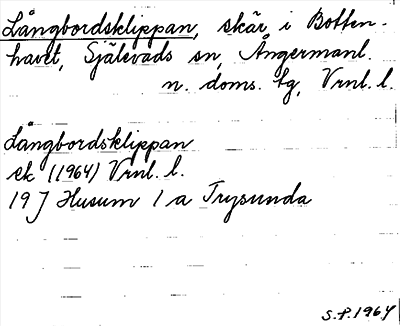 Långbordsklippan, skär i Botten-
havet, Själevads sn, Ångermanl.
n. doms. tg, Vrnl. l.
Långbordsklippan
sk (1964) Vrnl. l.
19 J Husum 1 a Trysunda
S.P. 1964